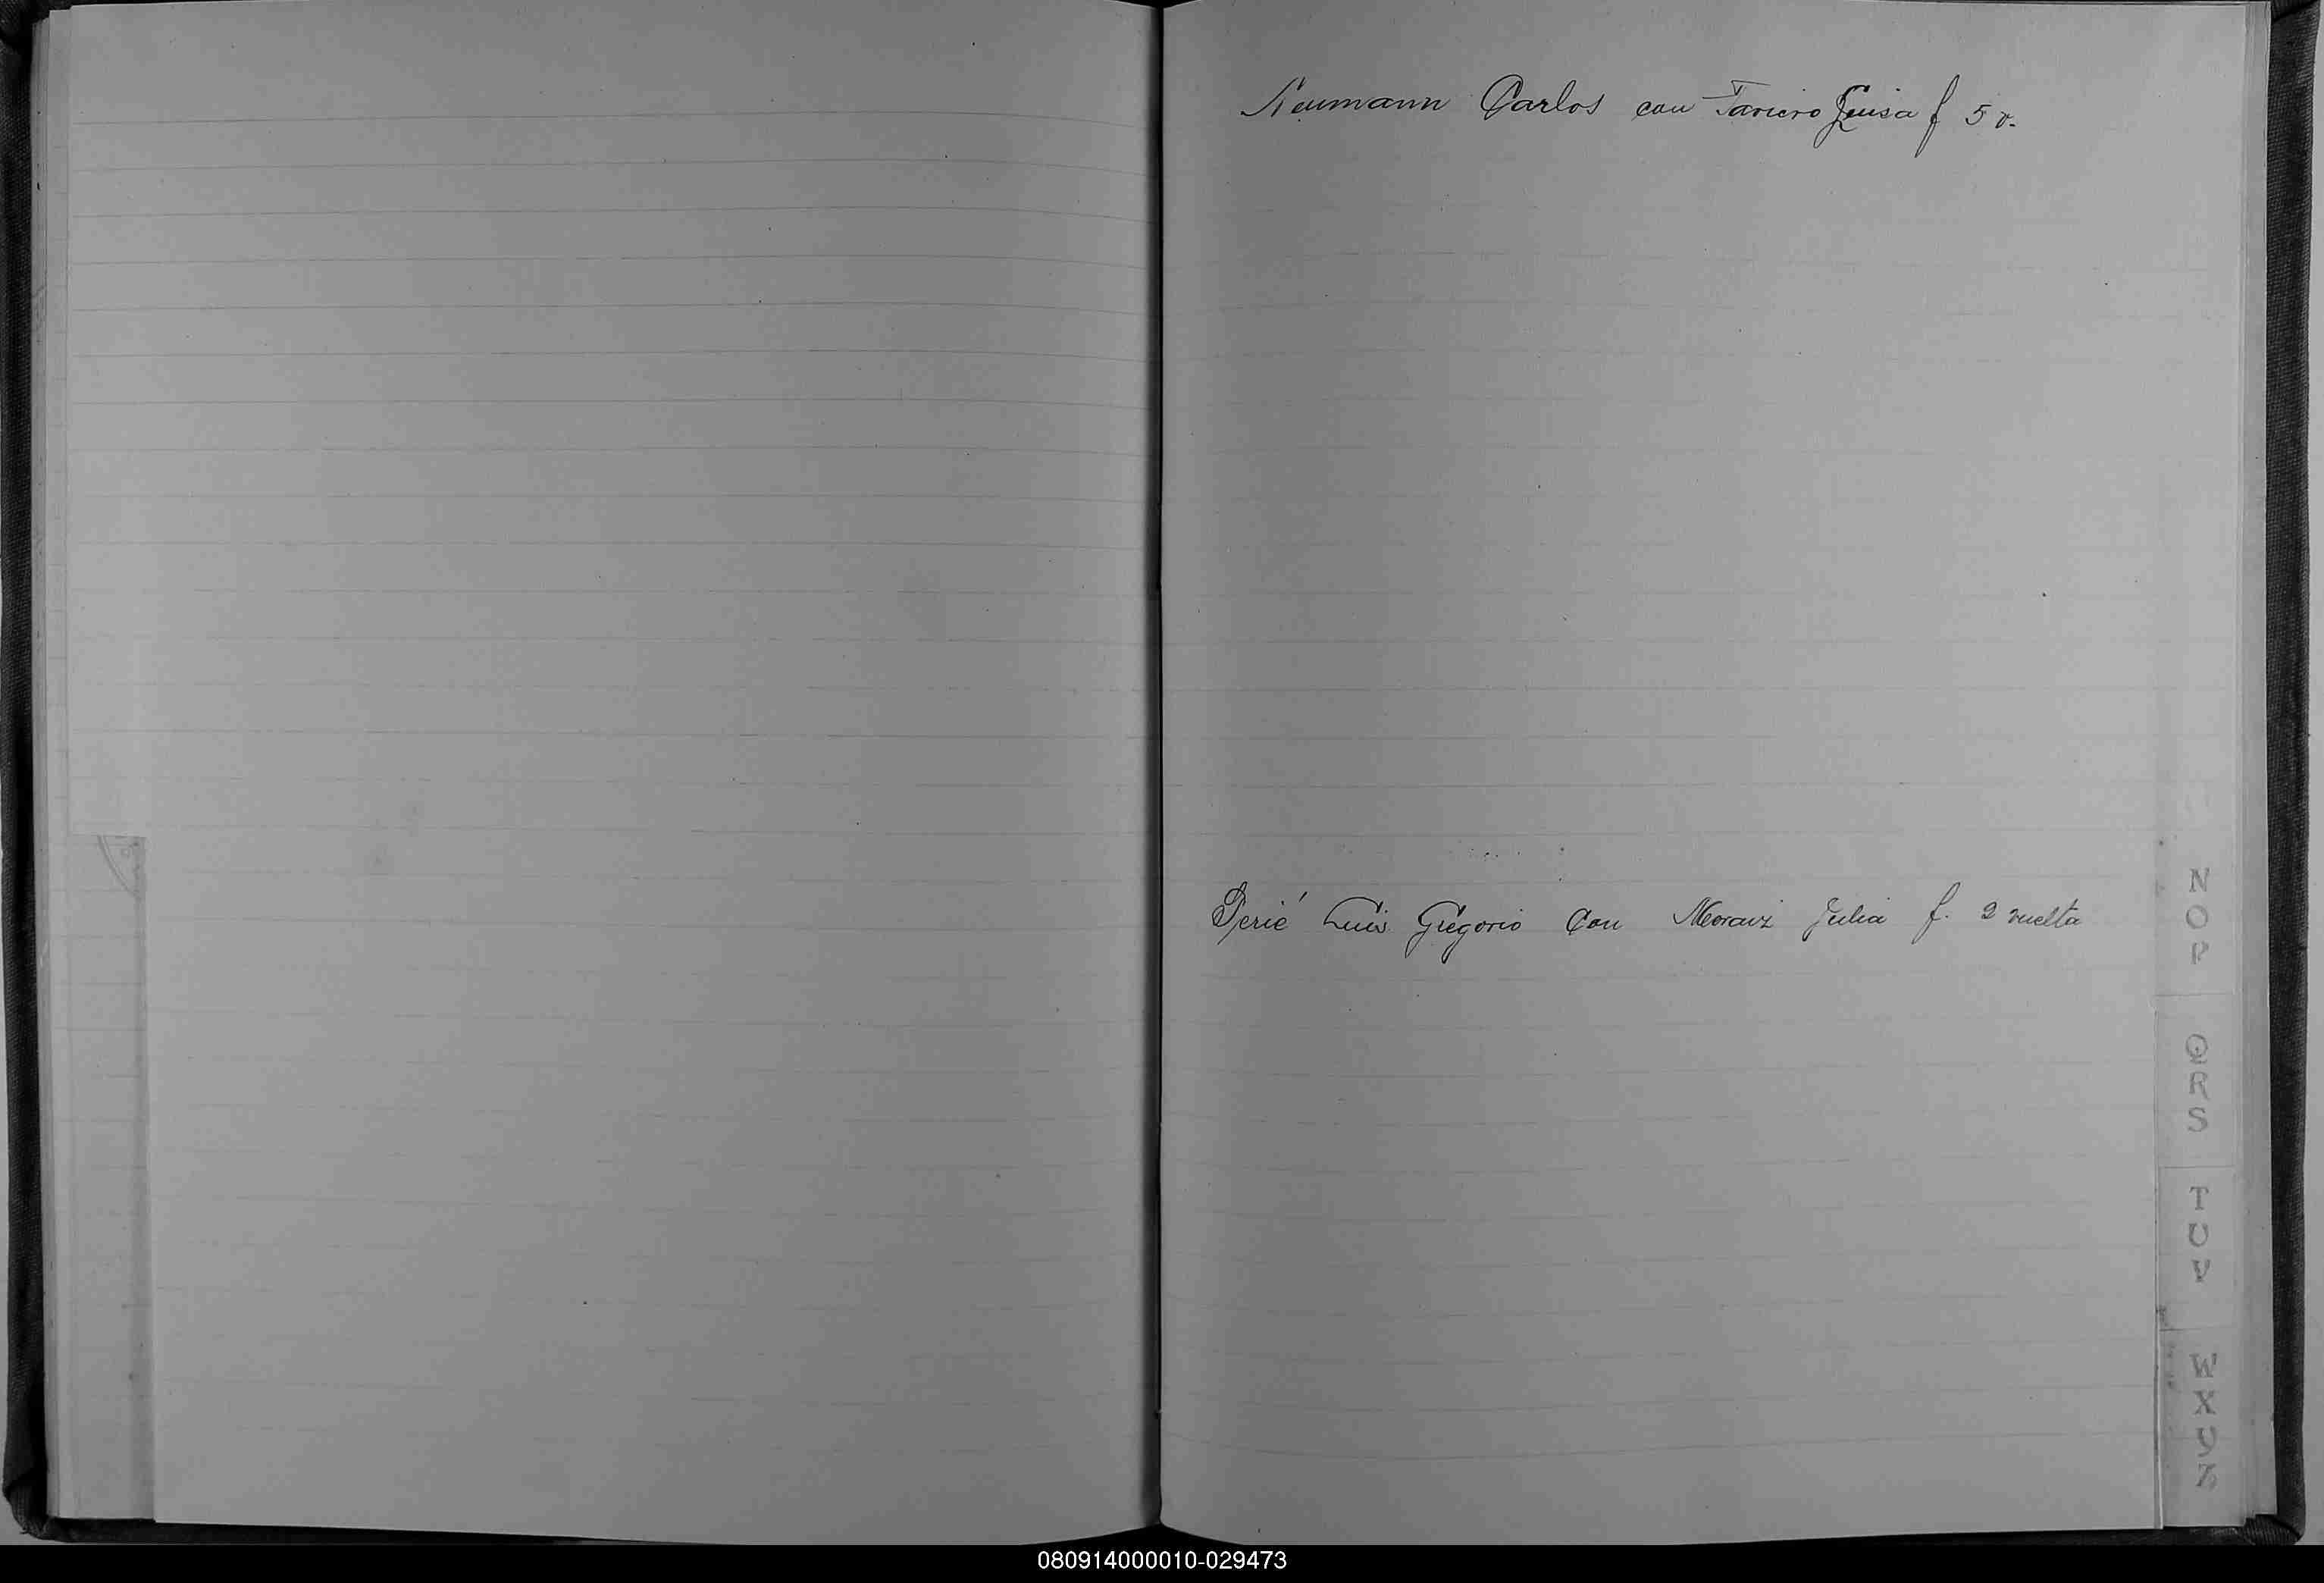 Neumann Carlos con Luisa f 5 v.
Perié Luis Gregorio con Julia f. 2 vuelta
N
O
P
Q
R
S
T
U
V
W
X
Y
Z
080914000010-029473